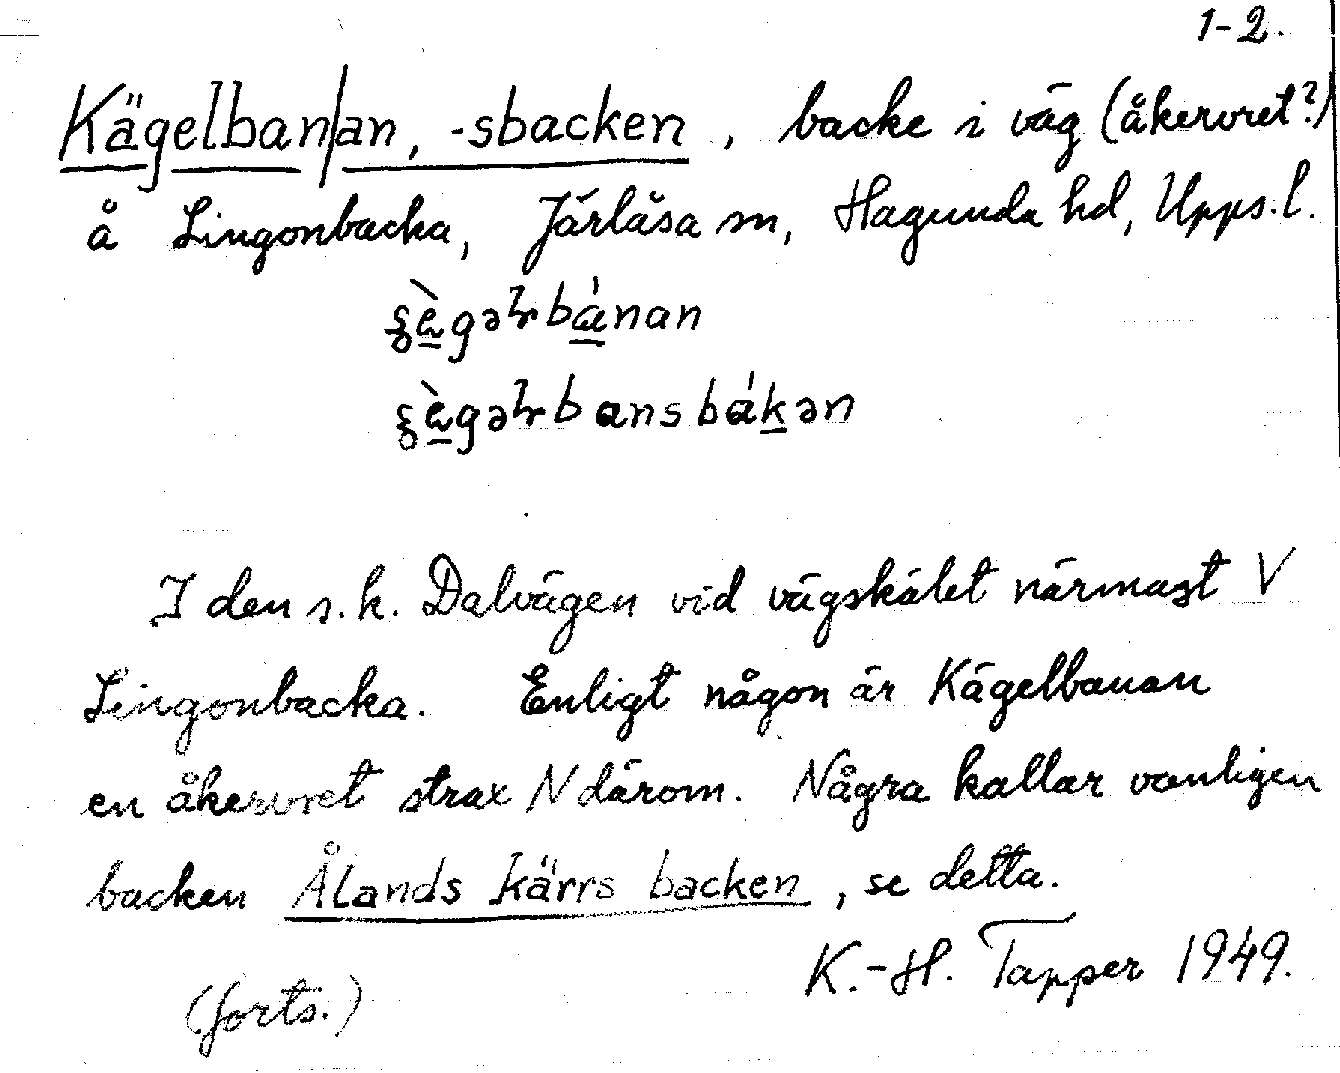 1-2.
Kägelban/an, -sbacken, backe i väg (åkervret?)
å Lingonbacka, Järlåsa sn, Hagunda hd, Upps.l.
I den s.k. Dalvägen vid vägskälet närmast V
Lingonbacka. Enligt någon är Kägelbanan
en åkervret strax N därom. Några kallar vanligen
backen Ålands kärrs backen, se detta.
K.-H. Tapper 1949.
(forts.)